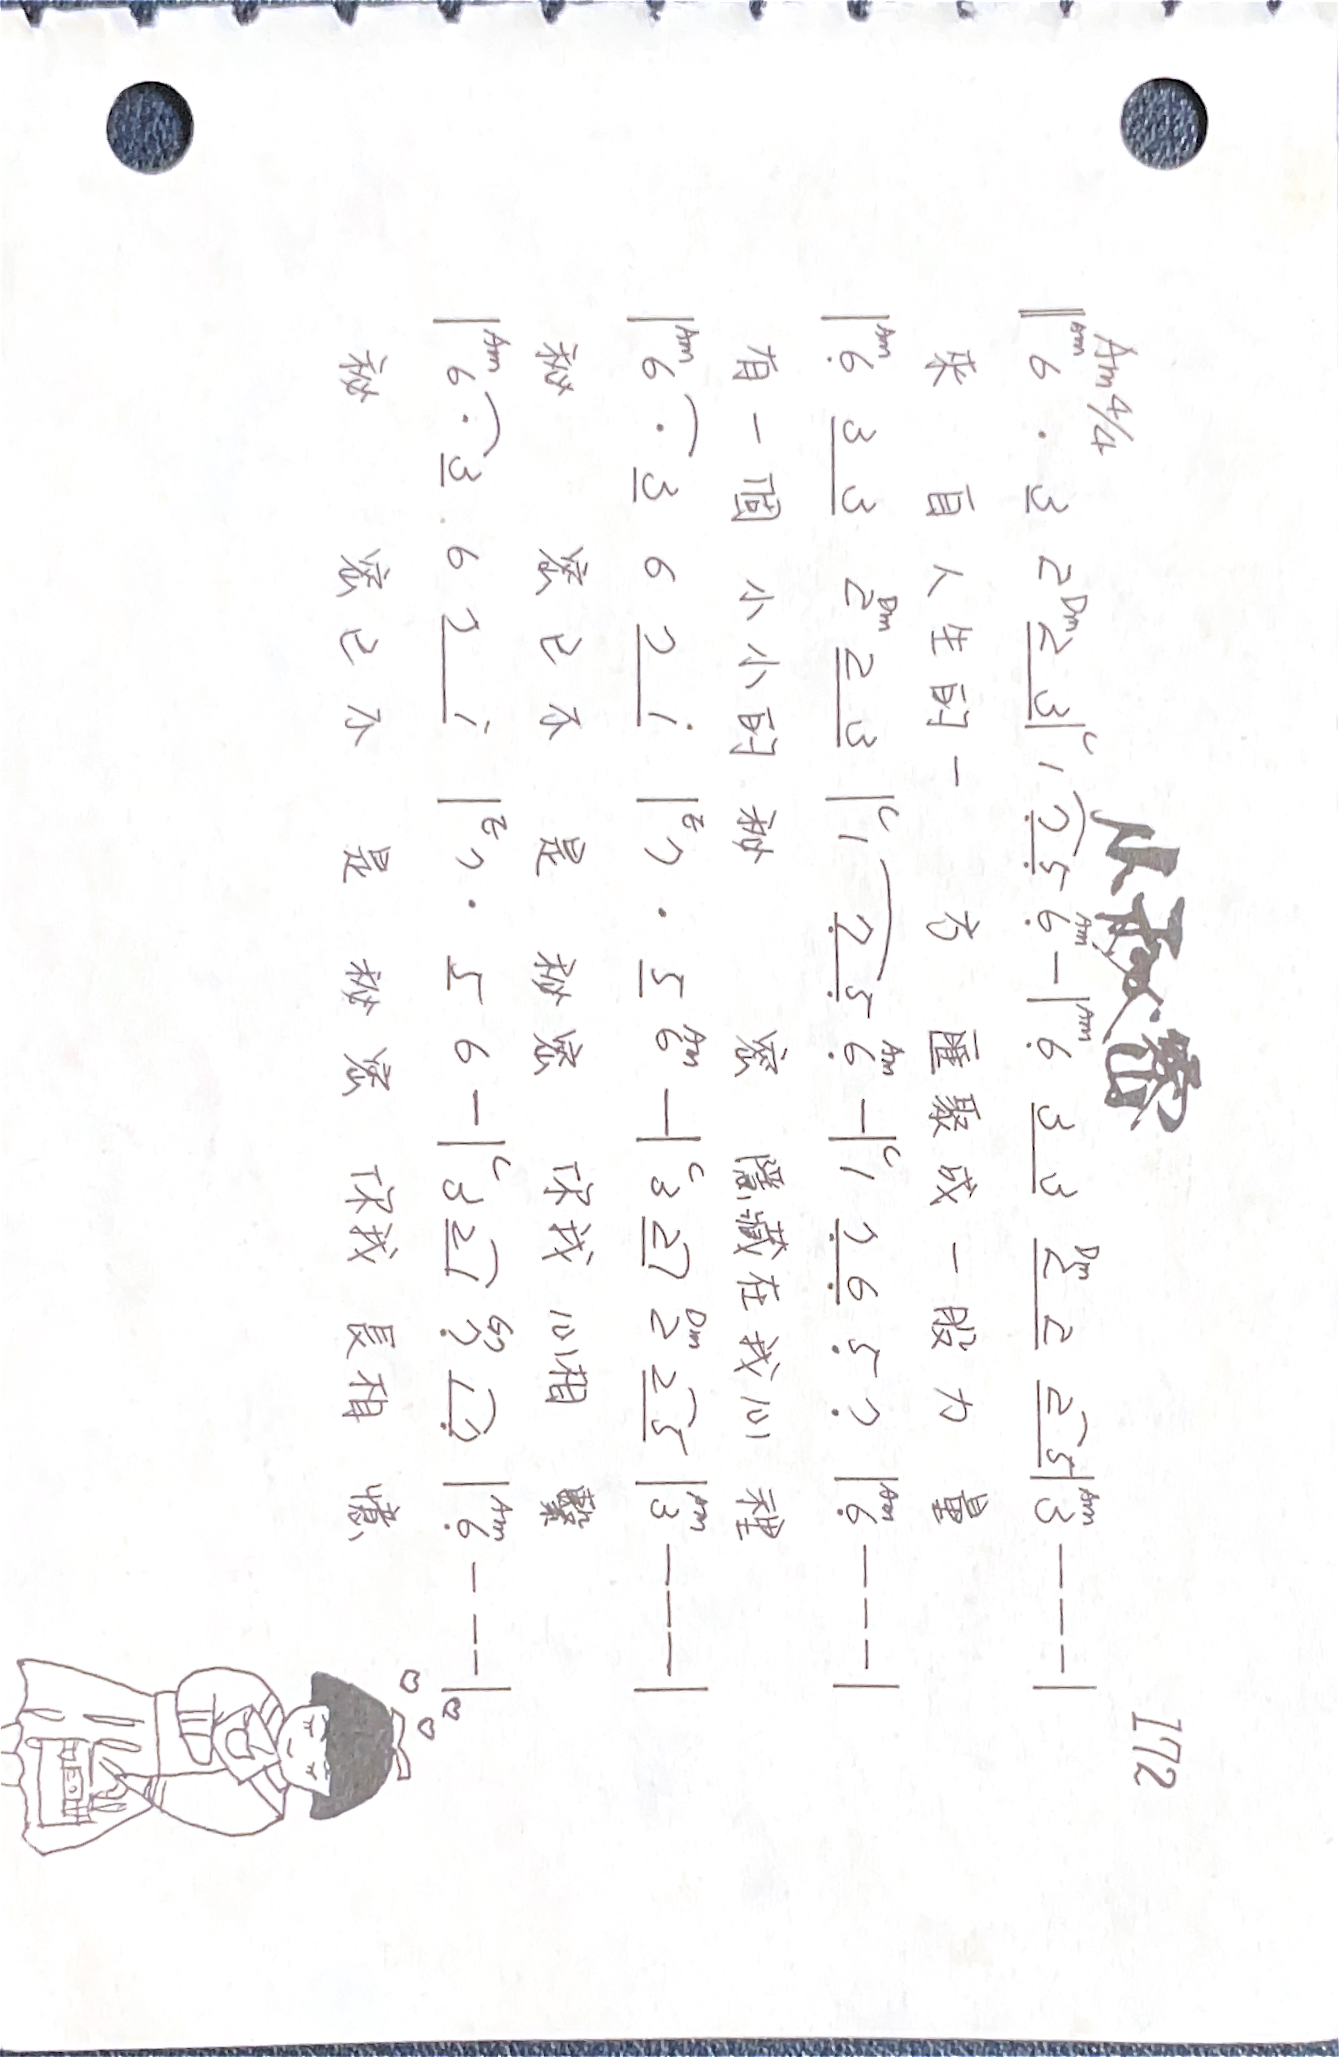 小秘密
172
Am 4/4
‖Am 6 · 3 2 Dm 2 3 |C 1 7 5 Am 6 — |Am 6 3 3 Dm 2 2 2 5 |Am 3 — — — |
來 自人生的一 方 匯聚成一股力 量
|Am 6 3 3 Dm 2 2 3 |C 1 7 5 Am 6 — |C 1 7 6 5 7 |Am 6 — — — |
有一個 小小的 秘 密 隱藏在我心 裡
|Am 6 · 3 6 7 i |E 7 · 5 Am 6 — |C 3 2 1 Dm 2 2 5 |Am 3 — — — |
秘 密已不 是 秘密 你我 心相 繫
|Am 6 · 3 6 7 i |E 7 · 5 6 — |C 3 2 1 G7 7 1 7 |Am 6 — — — |
秘 密已不 是 秘密 你我 長相 憶